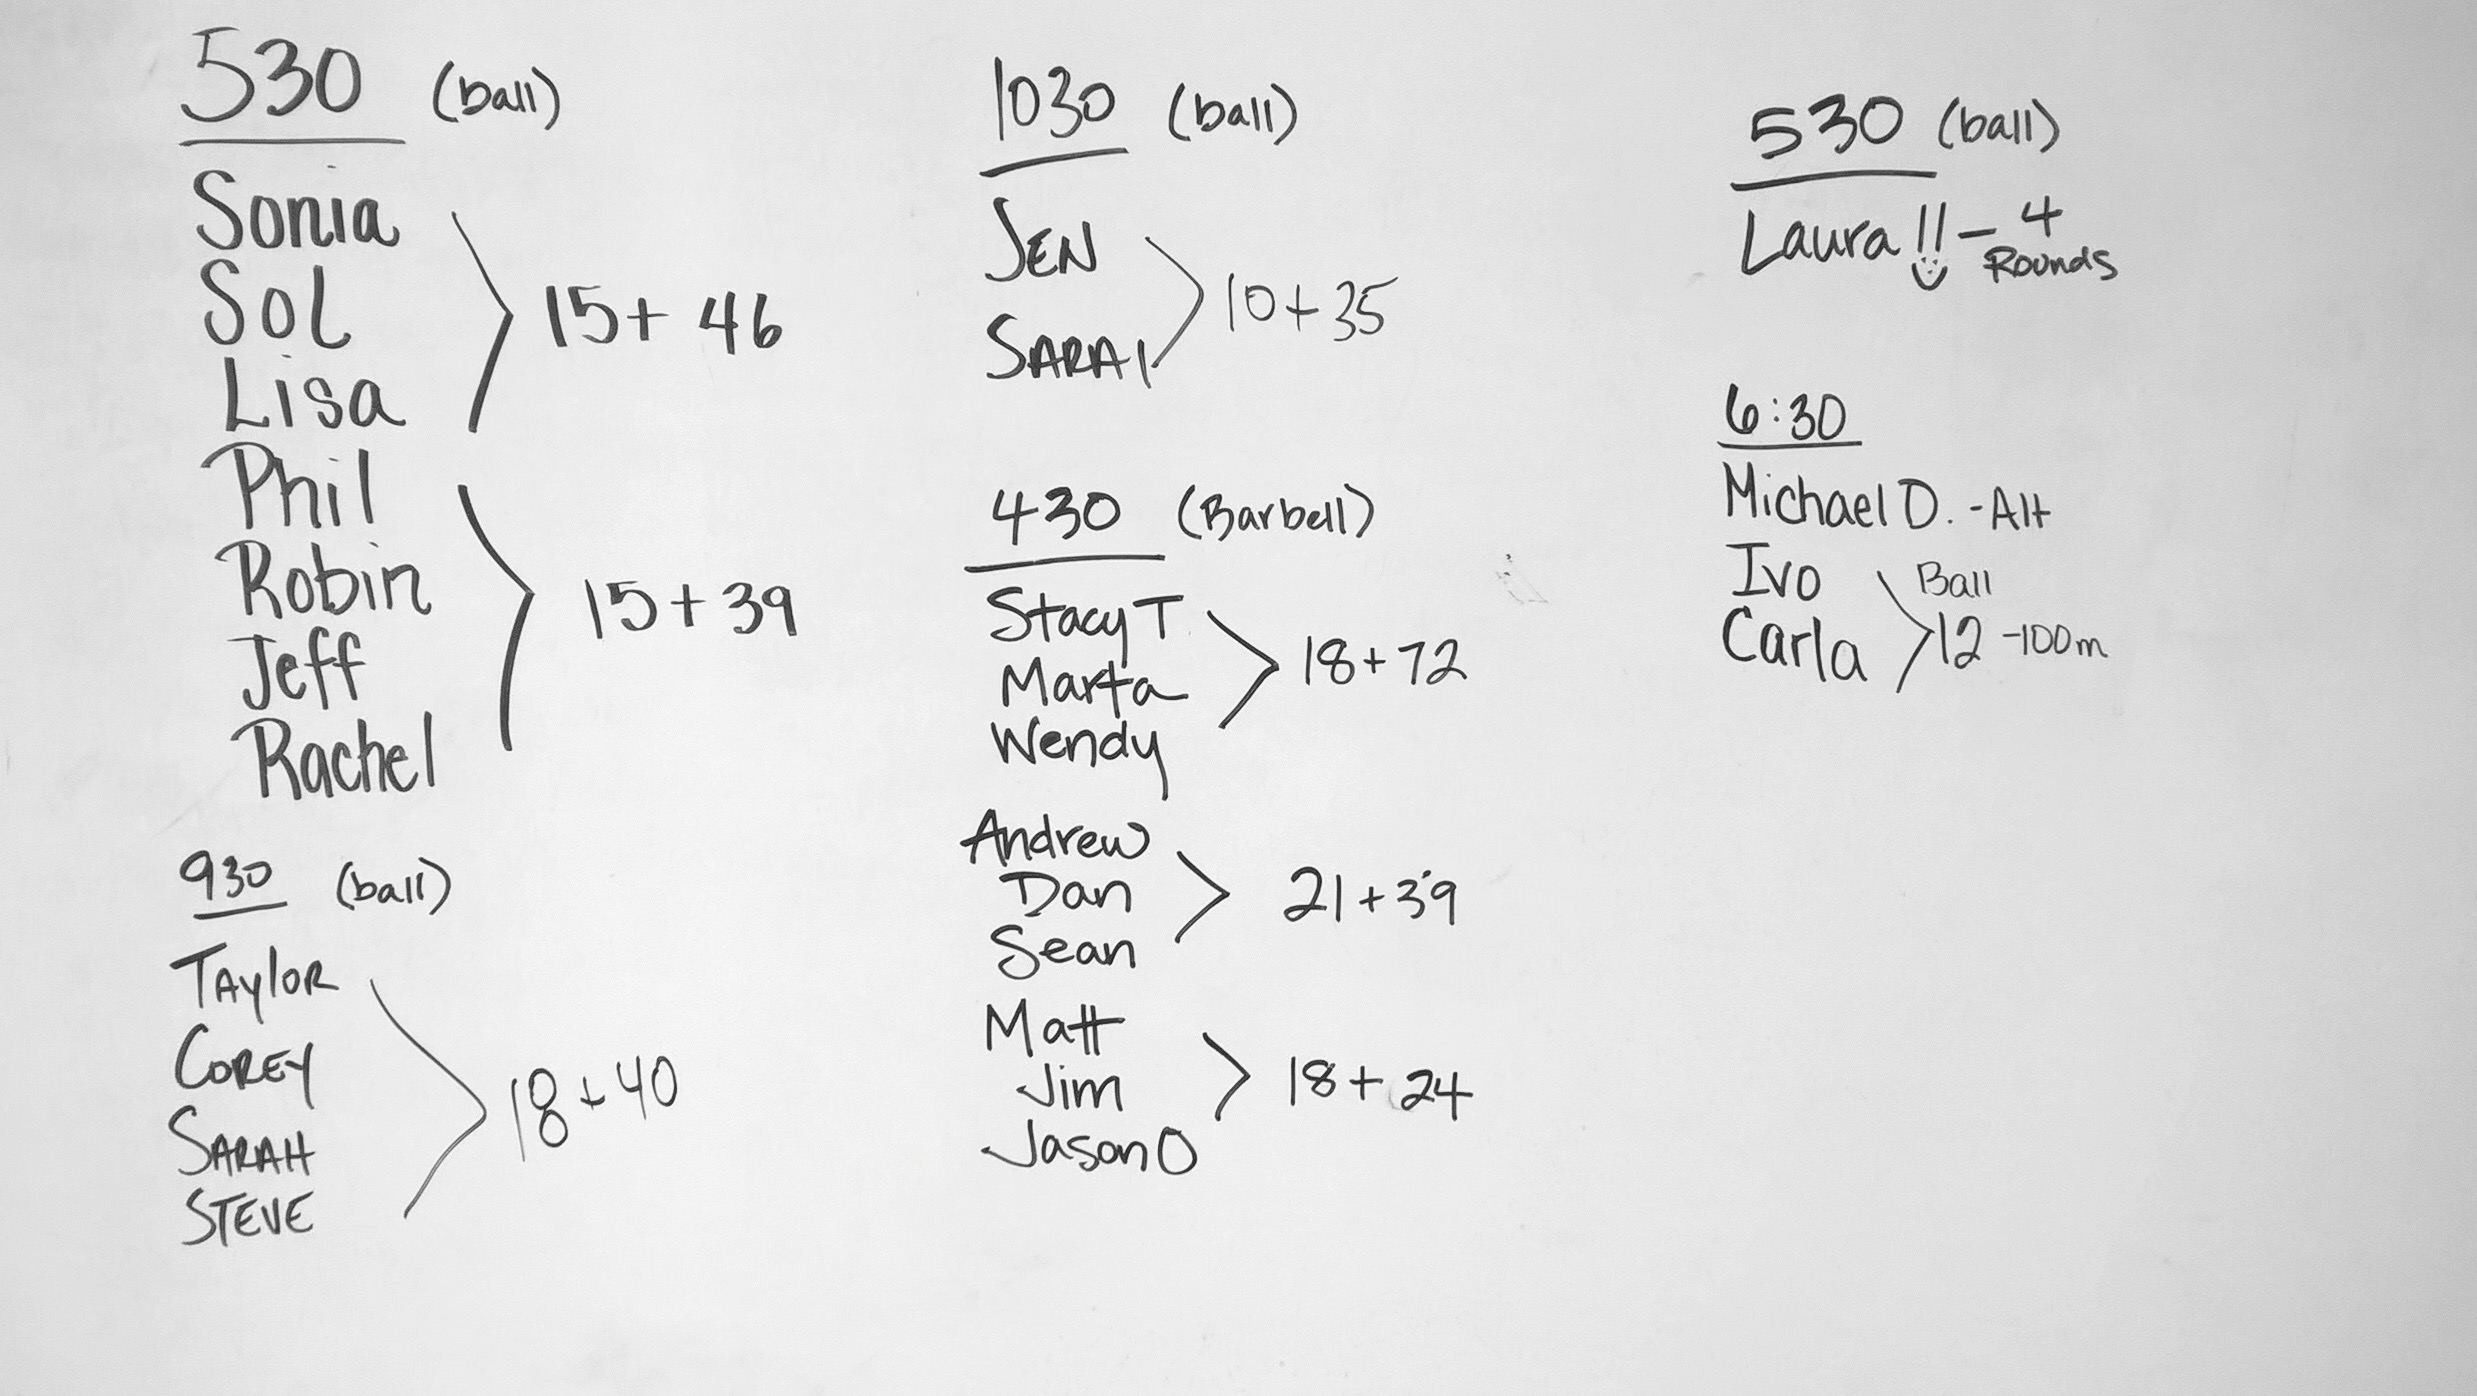 530 (ball)
Sonia
Sol
Lisa
15+ 46
Phil
Robin
Jeff
Rachel
15+39
930 (ball)
TAylOR
COREY
SARAH
STEVE
18+40
1030 (ball)
JEN
SARAI
10+35
430 (Barbell)
Stacy T
Marta
Wendy
18+72
Andrew
Dan
Sean
21+39
Matt
Jim
Jason O
18+ 24
530 (ball)
Laura !! - 4
Rounds
6:30
Michael D. - Alt
Ivo
Carla
Ball
12 -100m